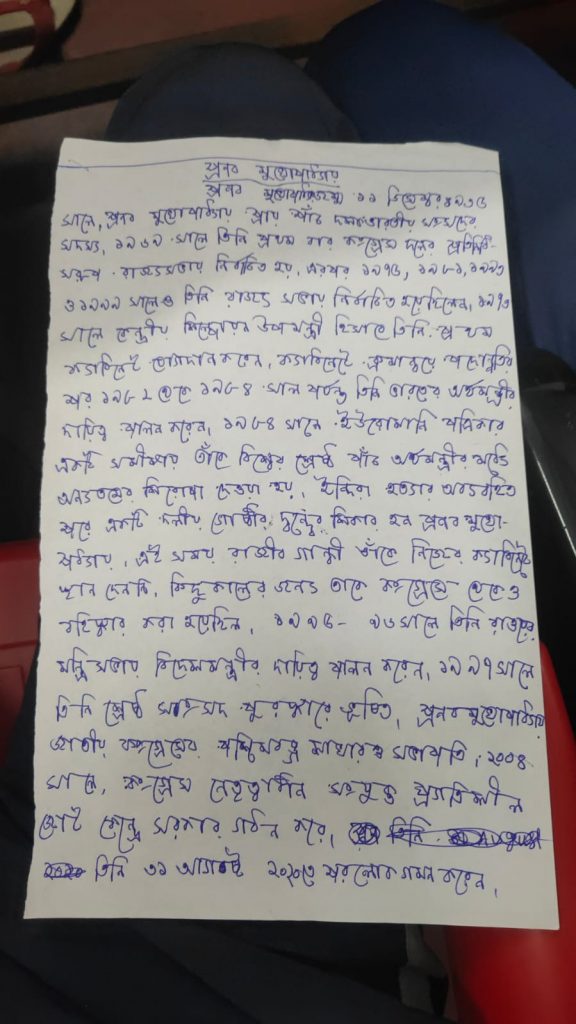 প্রনব মুখোপাধ্যায়
প্রনব মুখোপাধ্যায়জন্ম ১১ ডিসেম্বর ১৯৩৫
সালে, প্রনব মুখোপাধ্যায় প্রায় পাঁচ দশকভারতীয় সংসদের
সদস্য, ১৯৬৯ সালে তিনি প্রথম বার কংগ্রেস দলের প্রতিনিধি-
সরূপ রাজ্যসভায় নির্বাচিত হয়, এরপর ১৯৭৫, ১৯৮১, ১৯৯৩
ও ১৯৯৯ সালেও তিনি রাজ্য সভায় নির্বাচিত হয়েছিলেন, ১৯৭৩
সালে কেন্দ্রীয় শিল্পোন্নয়ন উপমন্ত্রী হিসাবে তিনি প্রথম
ক্যাবিনেটে যোগদান করেন, ক্যাবিনেটে ক্রমান্বয়ে পদোন্নতির
পর ১৯৮২ থেকে ১৯৮৪ সাল পর্যন্ত তিনি ভারতের অর্থমন্ত্রীর
দায়িত্ব পালন করেন, ১৯৮৪ সালে ইউরোমানি পত্রিকার
একটি সমীক্ষায় তাঁকে বিশ্বের শ্রেষ্ঠ পাঁচ অর্থমন্ত্রীর মধ্যে
অন্যতমের শিরোপা দেওয়া হয়, ইন্দিরা হত্যার অব্যবহিত
পরে একটি দলীয় গোষ্ঠীর দ্বন্দ্বের শিকার হন প্রনব মুখো-
পাধ্যায়, এই সময় রাজীব গান্ধী তাঁকে নিজের ক্যাবিনেটে
স্থান দেননি, কিছুকালের জন্য তাকে কংগ্রেস থেকেও
বহিষ্কার করা হয়েছিল, ১৯৯৫-৯৬ সালে তিনি রাওয়ের
মন্ত্রি সভায় বিদেশমন্ত্রীর দায়িত্ব পালন করেন, ১৯৯৭ সালে
তিনি শ্রেষ্ঠ সাংসদ পুরস্কারে ভূষিত, প্রনব মুখোপাধ্যায়
জাতীয় কংগ্রেসের পশ্চিমবঙ্গ শাখারও সভাপতি, ২০০৪
সালে, কংগ্রেস নেতৃত্বাধীন সংযুক্ত প্রগতিশীল
জোট কেন্দ্রে সরকার গঠন করে, তিনি August
তিনি ৩১ আগষ্ট ২০২০তে পরলোক গমন করেন,